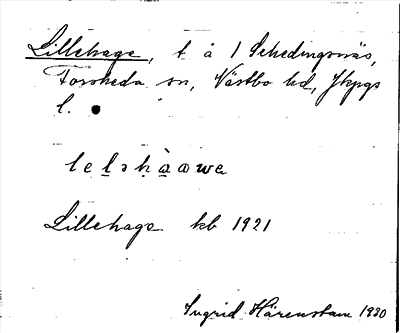 Lillehage, t. å 1 Schedingsnäs,
Forsheda sn, Västbo hd, Jkpgs
l.
lelǝhàawe
Lillehage kb 1921
Ingrid Härenstam 1930